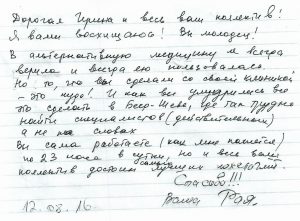 Дорогая Ирина и весь ваш коллектив!
Я вами восхищаюсь! Вы молодец!
В альтернативную медицину я всегда
верила и всегда ею пользовалась.
Но то, что вы сделали со своей клиникой
- это чудо! И как вы умудрились все
это сделать в Беер-Шеве, где так трудно
найти специалистов (действительных)
а не на словах
Вы сама работаете (как мне кажется)
по 23 часа в сутки, но и весь ваш
коллектив достоин похвалы
Спасибо!!!
Ваша Рая.
12.08.16.